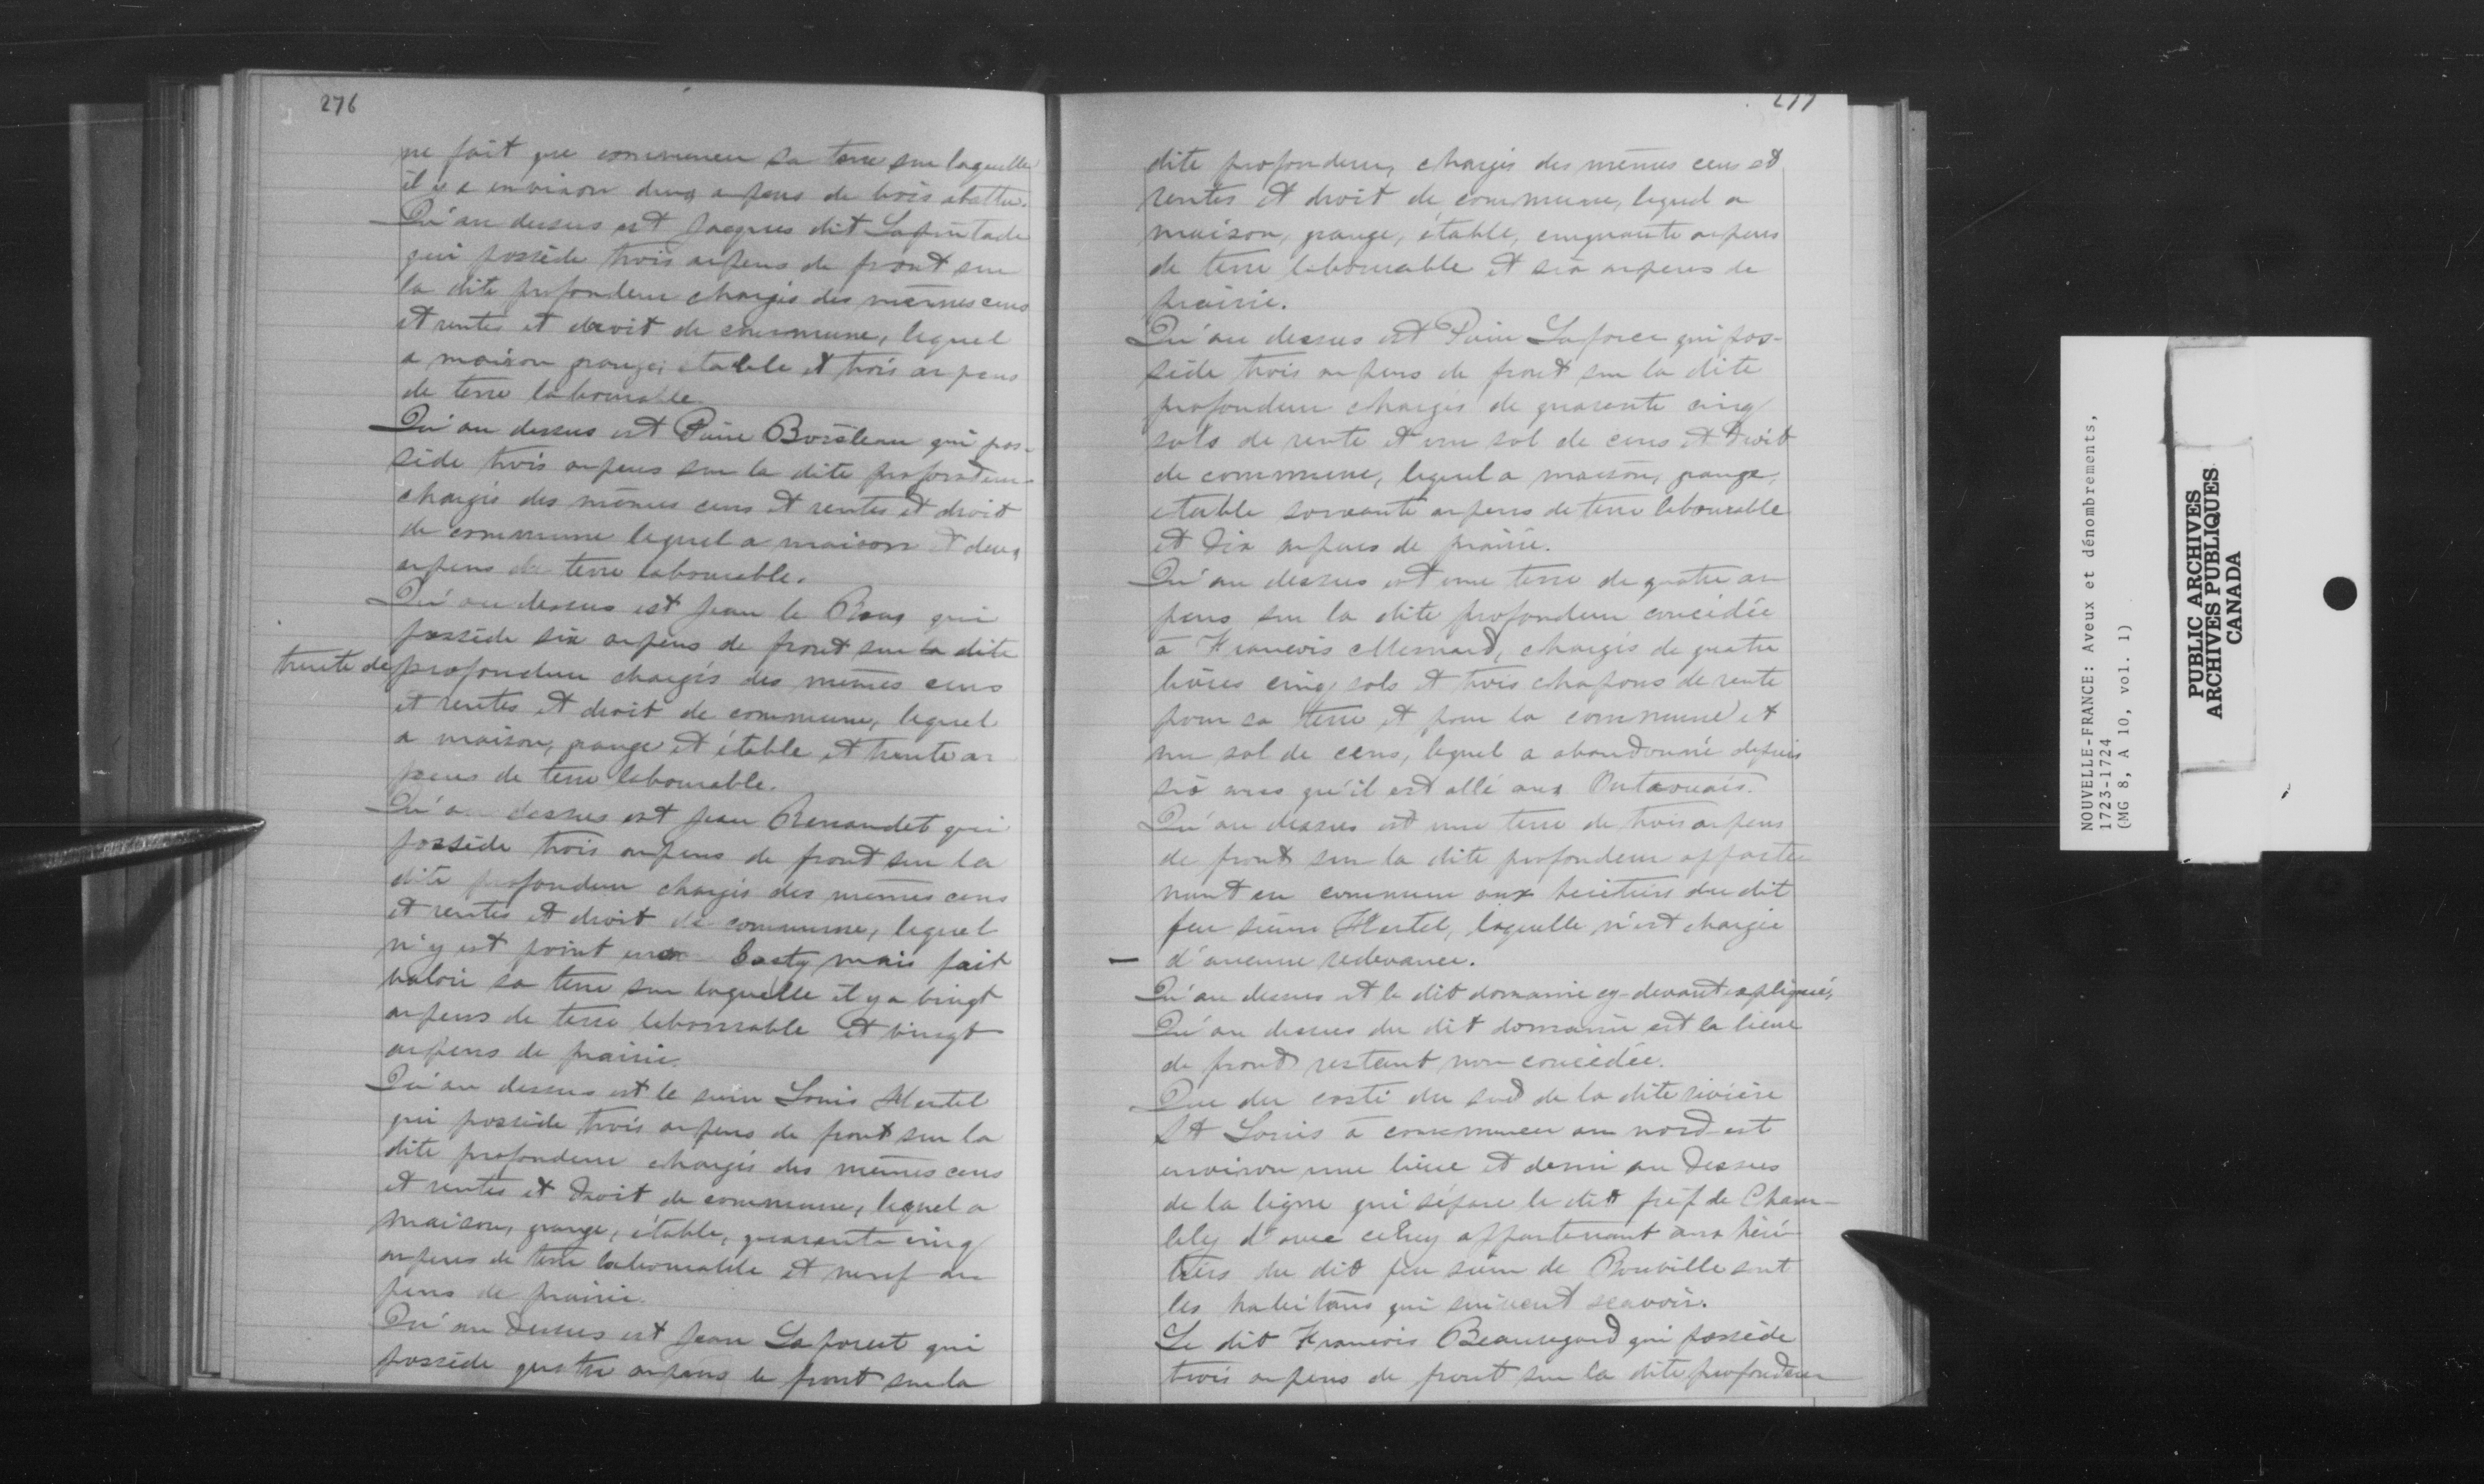 276
ne fait que commencer sa terre sur laquelle
il y a environ deux arpens de bois abattu.
Qu'au dessus est Jacques dit Lafeuitade
qui possède trois arpens de front sur
la dite profondeur chargés des mêmes cens
et rentes et droit de commune, lequel
a maison grange, étable et trois arpens
de terre labourable.
Qu'au dessus est Pierre Boisleau qui pos-
sède trois arpens sur la dite profondeur
chargés des mêmes cens et rentes et droit
de commune lequel a maison et deux
arpens de terre labourable.
Qu'au dessus est Jean le Roux qui
possède six arpens de front sur la dite
trente de profondeur chargés des mêmes cens
et rentes et droit de commune, lequel
a maison, grange et étable et trente ar
pens de terre labourable.
Qu'a dessus est Jean Renaudet qui
possède trois arpens de front sur la
dite profondeur chargés des mêmes cens
et rentes et droit de commune, lequel
n'y est point basty mais fait
valoir sa terre sur laquelle il y a vingt
arpens de terre labourable et vingt
arpens de prairie.
Qu'au dessus est le sieur Louis Hertel
qui possède trois arpens de front sur la
dite profondeur chargés des mêmes cens
et rentes et droit de commune, lequel a
maison, grange, étable, quarante cinq
arpens de terre labourable et neuf ar
pens de prairie.
Qu'au dessus est Jean Laforest qui
possède quatre arpens de front sur la
277
dite profondeur, chargés des mêmes cens et
rentes et droit de commune, lequel a
maison, grange, étable, cinquante arpens
de terre labourable et six arpens de
prairie.
Qu'au dessus est Pierre Laforce qui pos-
sède trois arpens de front sur la dite
profondeur chargés de quarante cinq
sols de rente et un sol de cens et droit
de commune, lequel a maison, grange,
étable soixante arpens de terre labourable
et dix arpens de prairie.
Qu'au dessus est une terre de quatre ar
pens sur la dite profondeur concédée
à Francois Mesnard, chargés de quatre
livres cinq sols et trois chapons de rente
pour sa terre et pour la commune et
un sol de cens, lequel a abandonné depuis
six ans qu'il est allé aux Outaouais.
Qu'au dessus est une terre de trois arpens
de front sur la dite profondeur apparte
nant en commun aux héritiers du dit
feu sieur Hertel, laquelle n'est chargée
— d'aucune redevance.
Qu'au dessus est le dit domaine cy-devant expliqué,
Qu'au dessus du dit domaine est la lieue
de front restant non concédée.
Que du costé du sud de la dite rivière
St Louis à commencer au nord-est
environ une lieue et demi au dessus
de la ligne qui sépare le dit fief de Cham-
bly d'avec celuy appartenant aux héri-
tiers du dit feu sieur de Rouville sont
les habitans qui suivent scavoir.
Le dit Francois Beauregard qui possède
trois arpens de front sur la dite profondeur
NOUVELLE-FRANCE: Aveux et dénombrements,
1723-1724
(MG 8, A 10, vol. 1)
PUBLIC ARCHIVES
ARCHIVES PUBLIQUES
CANADA